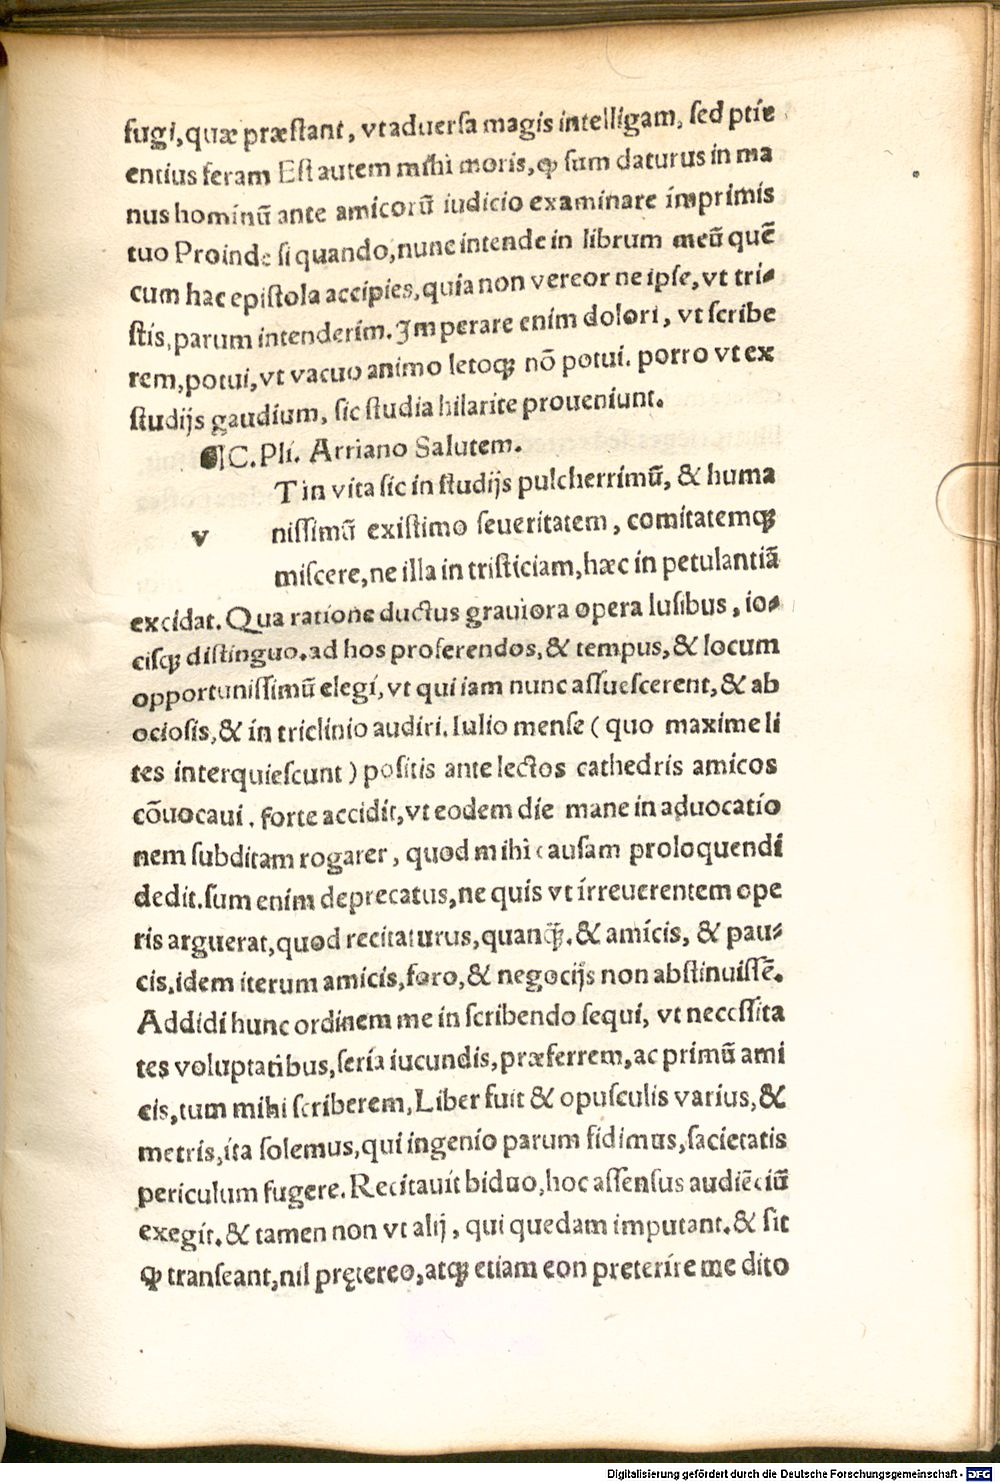 fugi, quæ præstant, vt aduersa magis intelligam, sed ptíe
entius feram Est autem mihi moris, qꝫ sum daturus in ma
nus hominũ ante amicorũ iudicio examinare imprimis
tuo Proinde si quando, nunc intende in librum meũ quẽ
cum hac epistola accipies, quia non vereor ne ipse, vt tri⸗
stis, parum intenderim. Imperare enim dolori, vt scribe
rem, potui, vt vacuo animo letoqꝫ nõ potui. porro vt ex
studijs gaudium, sic studia hilarite proueniunt.
¶ C. Pli. Arriano Salutem.
T in vita sic in studijs pulcherrimũ, & huma
v nissimũ existimo seueritatem, comitatemqꝫ
miscere, ne illa in tristiciam, hæc in petulantiã
excidat. Qua ratione ductus grauiora opera lusibus, io⸗
cisqꝫ distinguo. ad hos proferendos, & tempus, & locum
opportunissimũ elegi, vt qui iam nunc assuescerent, & ab
ociosis, & in triclinio audiri. Iulio mense ( quo maxime li
tes interquiescunt ) positis ante lectos cathedris amicos
cõuocaui. forte accidit, vt eodem die mane in aduocatio
nem subditam rogarer, quod mihi causam proloquendi
dedit. sum enim deprecatus, ne quis vt irreuerentem ope
ris arguerat, quod recitaturus, quanqꝫ̃. & amicis, & pau⸗
cis. idem iterum amicis, foro, & negocijs non abstinuissẽ.
Addidi hunc ordinem me in scribendo sequi, vt necessita
tes voluptatibus, seria iucundis, præferrem, ac primũ ami
cis, tum mihi scriberem, Liber fuit & opusculis varius, &
metris, ita solemus, qui ingenio parum fidimus, sacietatis
periculum fugere. Recitauit biduo, hoc assensus audiẽciũ
exegit. & tamen non vt alij, qui quedam imputant. & sit
qꝫ transeant, nil pręterec, atqꝫ etiam eon preterire me dito
Digitalisierung gefördert durch die Deutsche Forschungsgemeinschaft - DFG